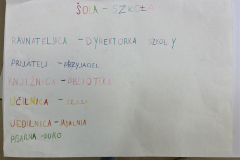 ŠOLA - SZKOŁA
RAVNATELJICA - DYREKTORKA SZKOŁY
PRIJATELJ - PRZYJACIEL
KNJIŽNICA - BIBLIOTEKA
UČILNICA -
JEDILNICA - JADALNIA
PISARNA - BIURO